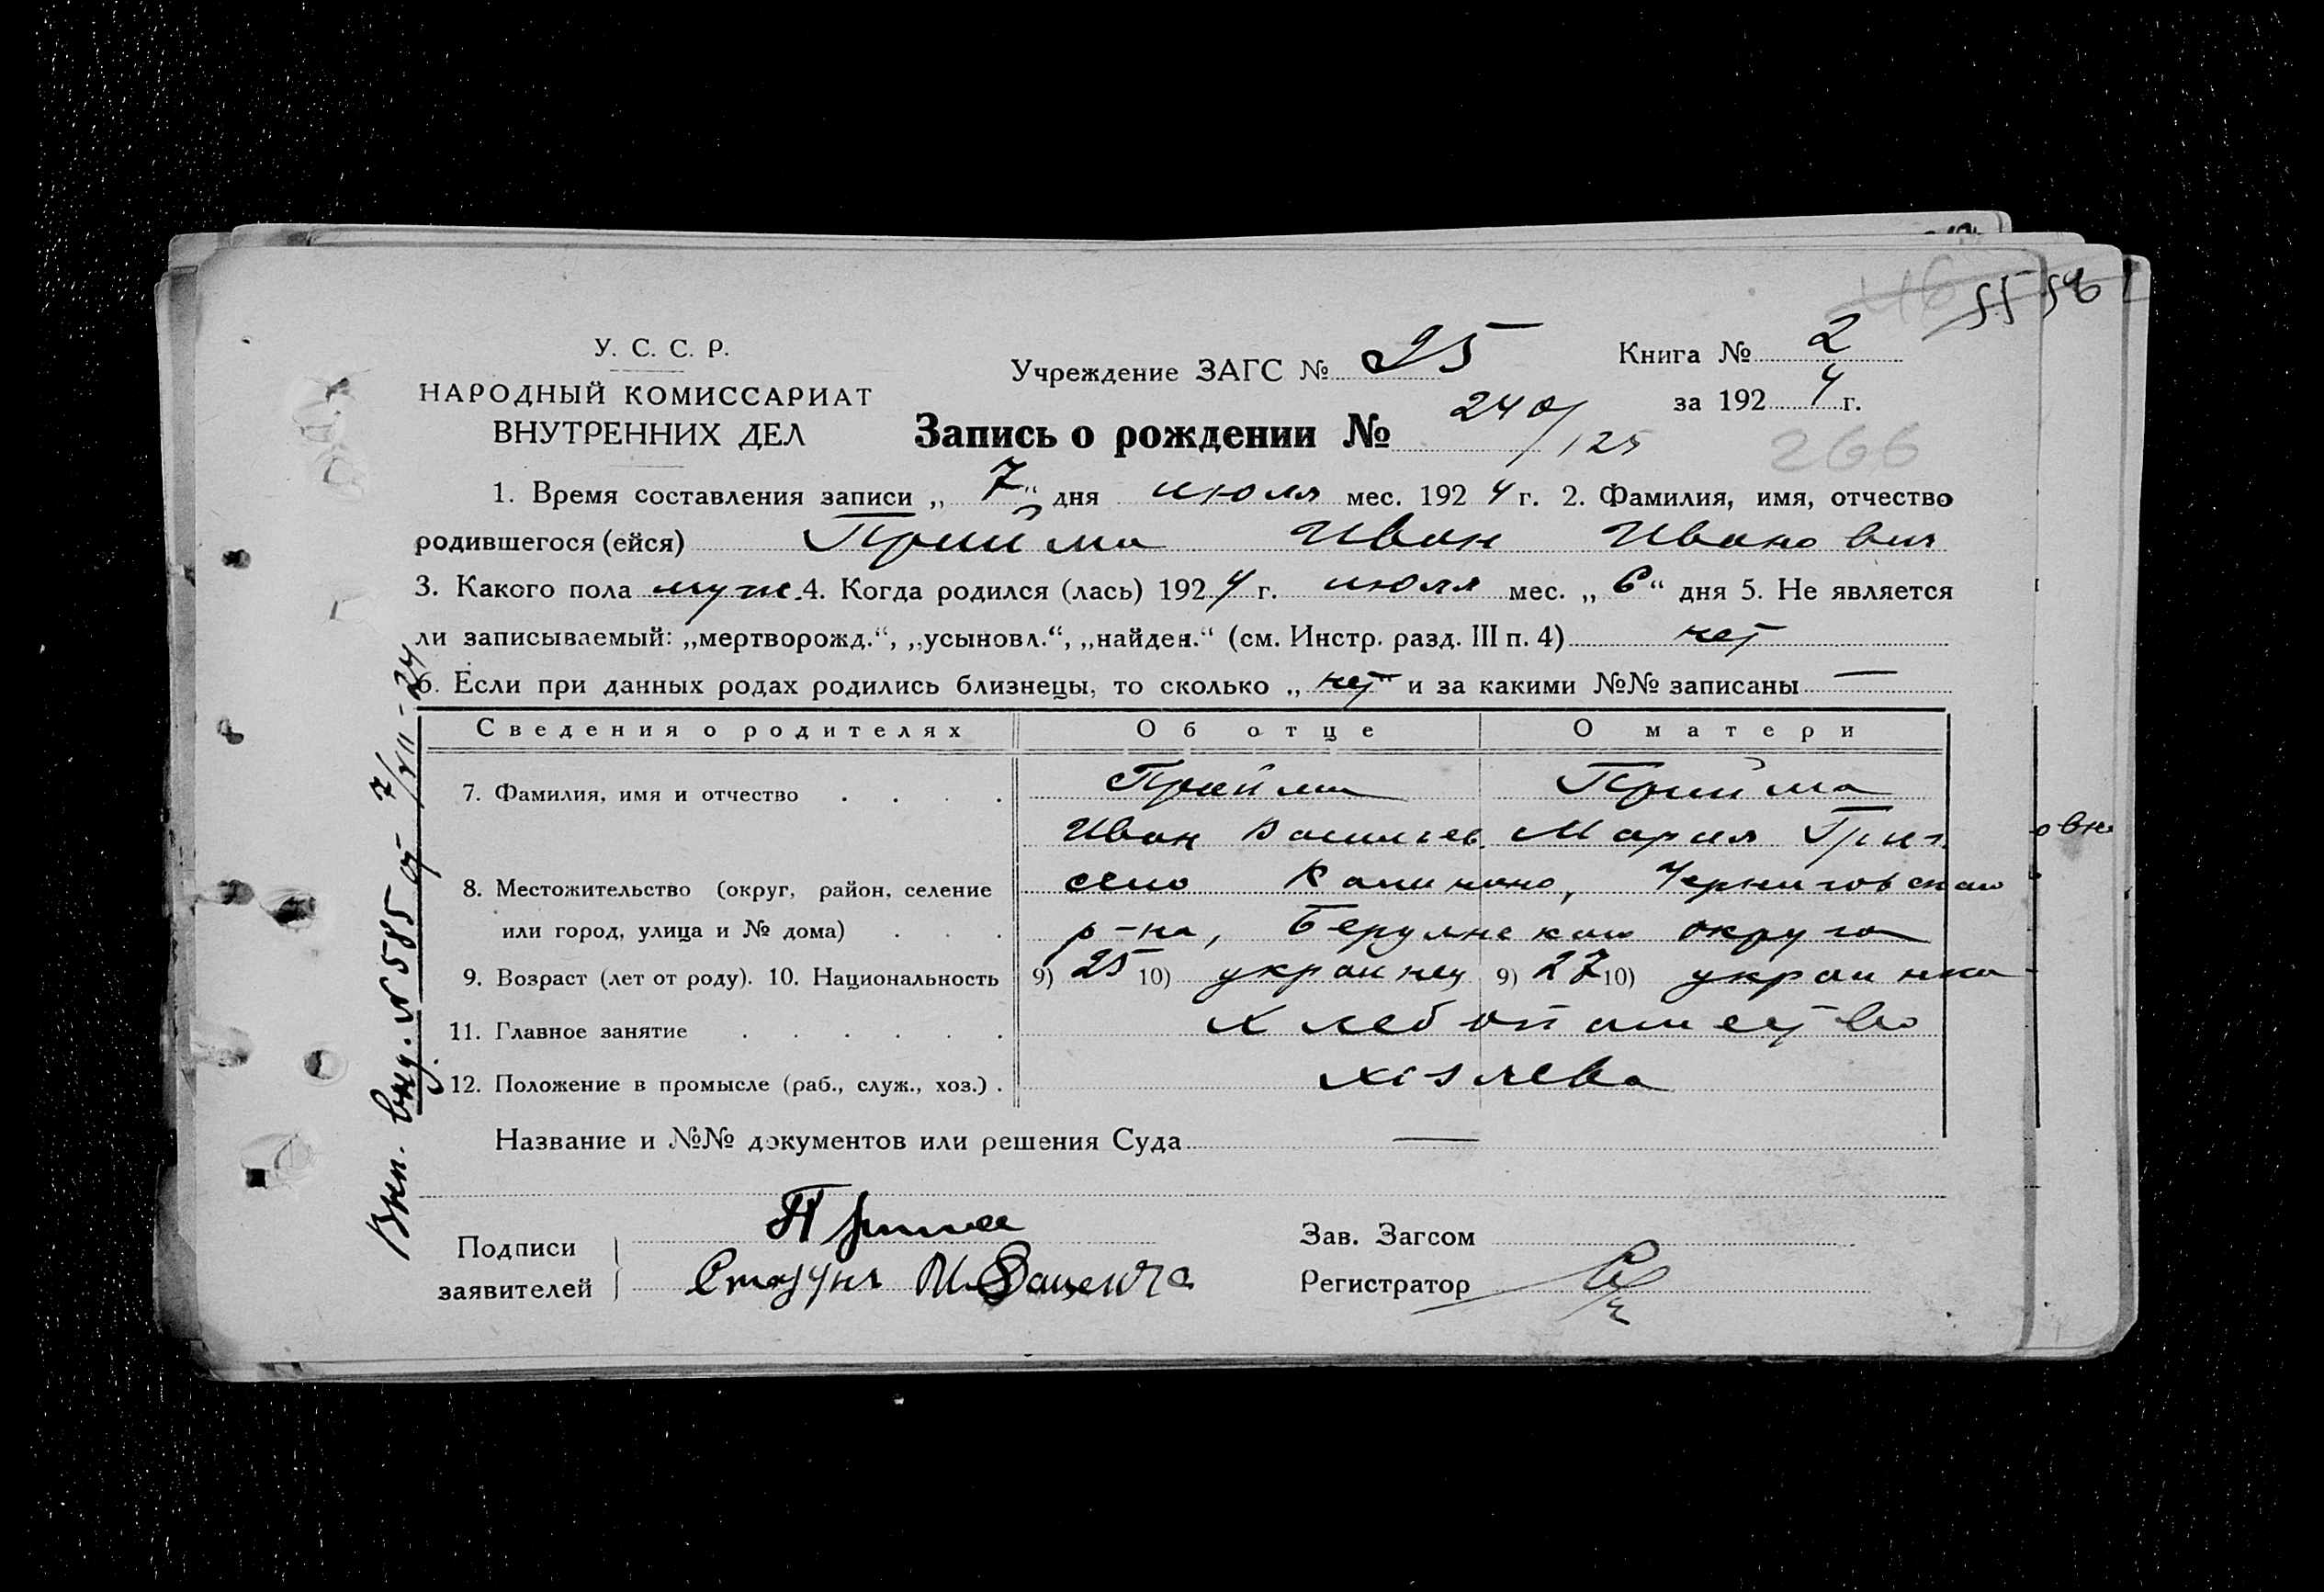 46 55 56
У. С. С. Р.
НАРОДНЫЙ КОМИССАРИАТ
ВНУТРЕННИХ ДЕЛ
Учреждение ЗАГС № 25
Книга № 2
за 1924 г.
Запись о рождении № 240/125
266
1. Время составления записи „ 7 “ дня июля мес. 1924 г. 2. Фамилия, имя, отчество
родившегося (ейся) Прийма Иван Иванович
3. Какого пола муж. 4. Когда родился (лась) 1924 г. июля мес. „ 6 “ дня 5. Не является
ли записываемый: „мертворожд.“, „усыновл.“, „найден.“ (см. Инстр. разд. III п. 4) нет
6. Если при данных родах родились близнецы, то сколько „ нет “ и за какими №№ записаны —
Сведения о родителях Об отце О матери
7. Фамилия, имя и отчество Прийма Прийма
Иван Васильев. Мария Григ.
8. Местожительство (округ, район, селение село Черниговского
или город, улица и № дома) р-на, Бердянского округа
9. Возраст (лет от роду). 10. Национальность 9) 25 10) украинец 9) 27 10) украинка
11. Главное занятие хлебопашество
12. Положение в промысле (раб., служ., хоз.) хозяева
Название и №№ документов или решения Суда —
Подписи
заявителей
Прийма
Зав. Загсом
Регистратор
№ 585 от 7/VII-24